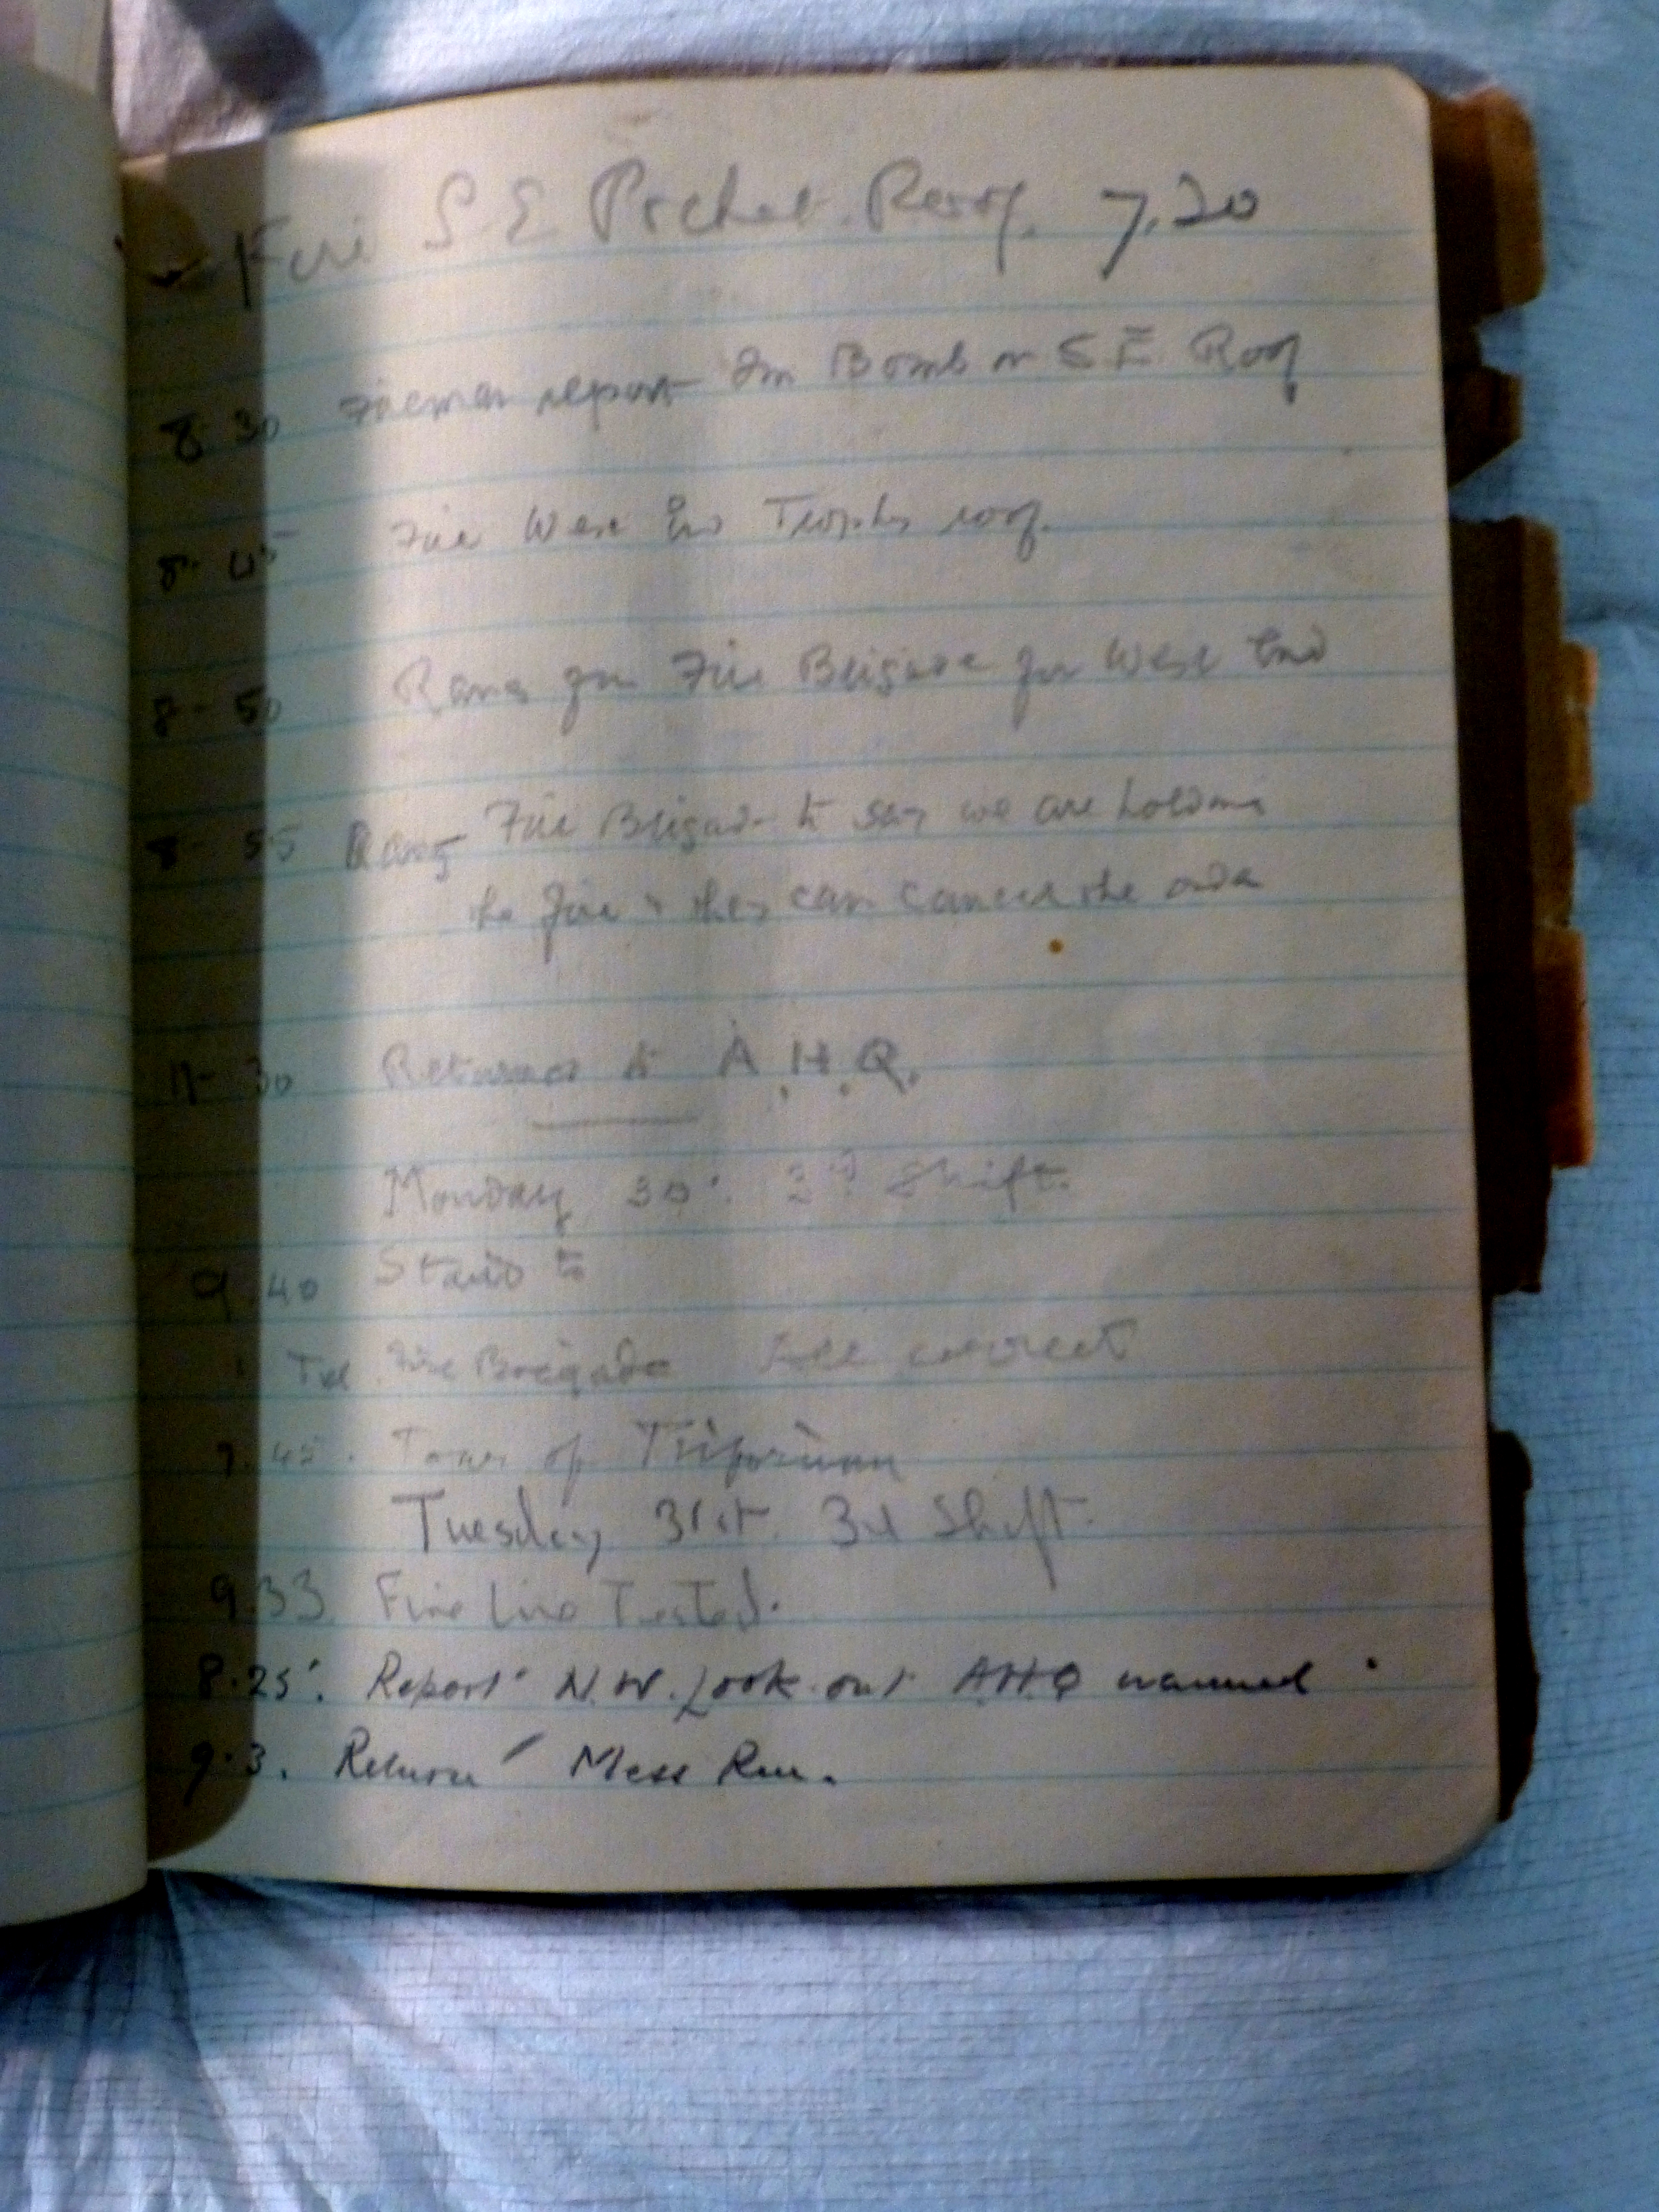 Fire S E Pocket Roof. 7.20
8.30 Fireman report Bomb on S E Roof
8.45 Fire West End Trophy roof.
8-50 Rang for Fire Brigade for West End
8-55 Rang Fire Brigade to say we are holding
the fire & they can cancel the order
11-30 Returned to A.H.Q.
Monday 30. 3rd Shift.
9.40 Stand to
Tel. Fire Brigade All correct
45. of Triforium
Tuesday 31st. 3rd Shift.
9.33 Fire Line Tested.
8.25. Report N.W. Look-out A.H.Q manned
9.3. Return Mess Rm.